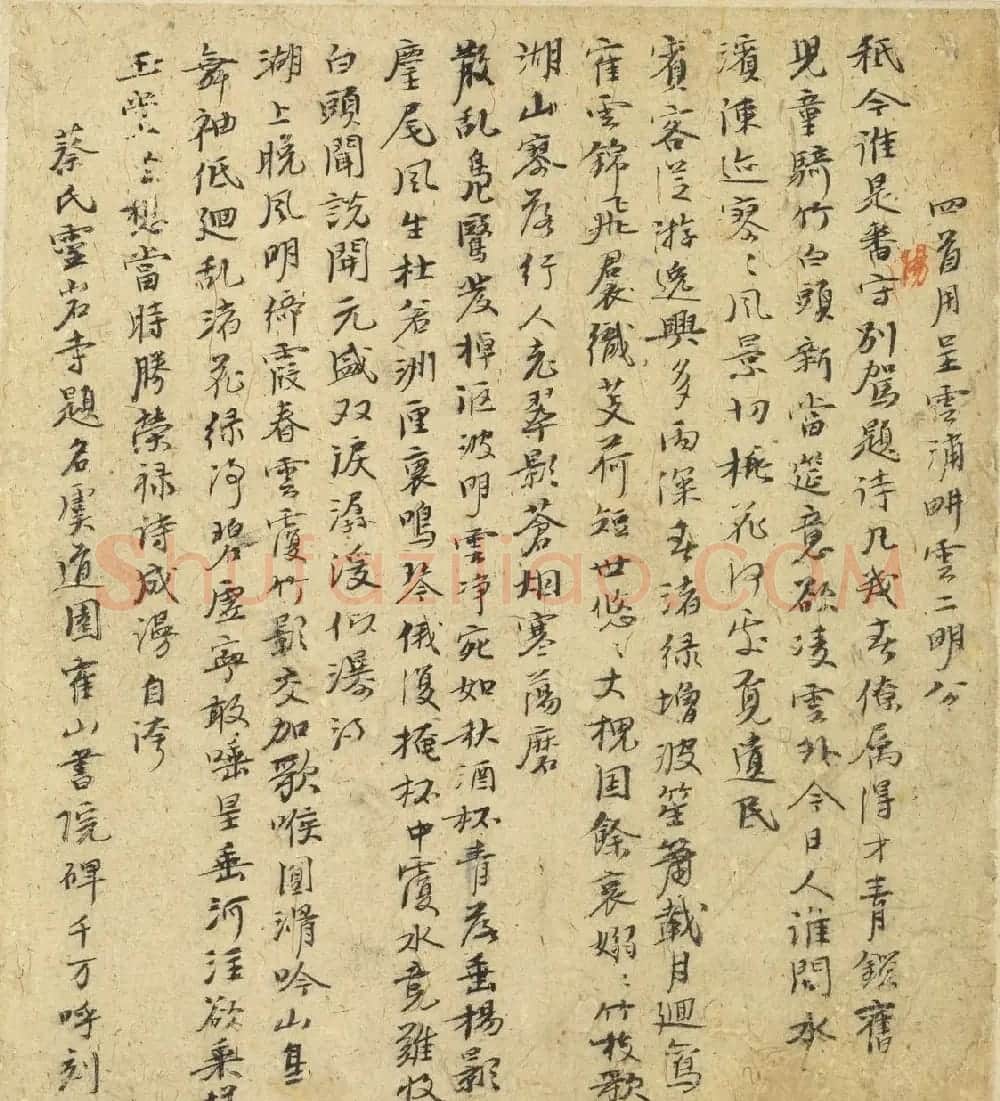 四首用呈雲浦畊雲二明公
秖今誰是書守別駕題诗几我去僚属得才青鎖舊
児童騎竹白頭新當筵意欲凌雲外今日人谁問水
濱陳迹寥〻風景切桃花何處覓遺民
賓客従游逸興多雨深春渚绿增波笙簫載月迴鴛
雲錦飛裙織芰荷短世悠〻大槐国餘哀嫋〻竹枝歌
湖山寥落行人老翠影蒼烟寒蕩磨
散乱凫鷖發棹讴波明雲净宛如秋酒杯青落垂楊影
麈尾風生杜若洲里裏鳴琴俄復掩杯中覆水竟難收
白頭聞說開元盛双淚潺湲似瀑流
湖上晚風明绮霞春雲覆竹影交加歌喉圓滑吟山鳥
舞袖低迴乱渚花绿净碧虚寧敢唾星垂河注欲乗槎
想當時勝榮禄诗成漫自誇
蔡氏靈岩寺題名虞道園崔山書院碑千万呼刻
Shufaziliao.COM